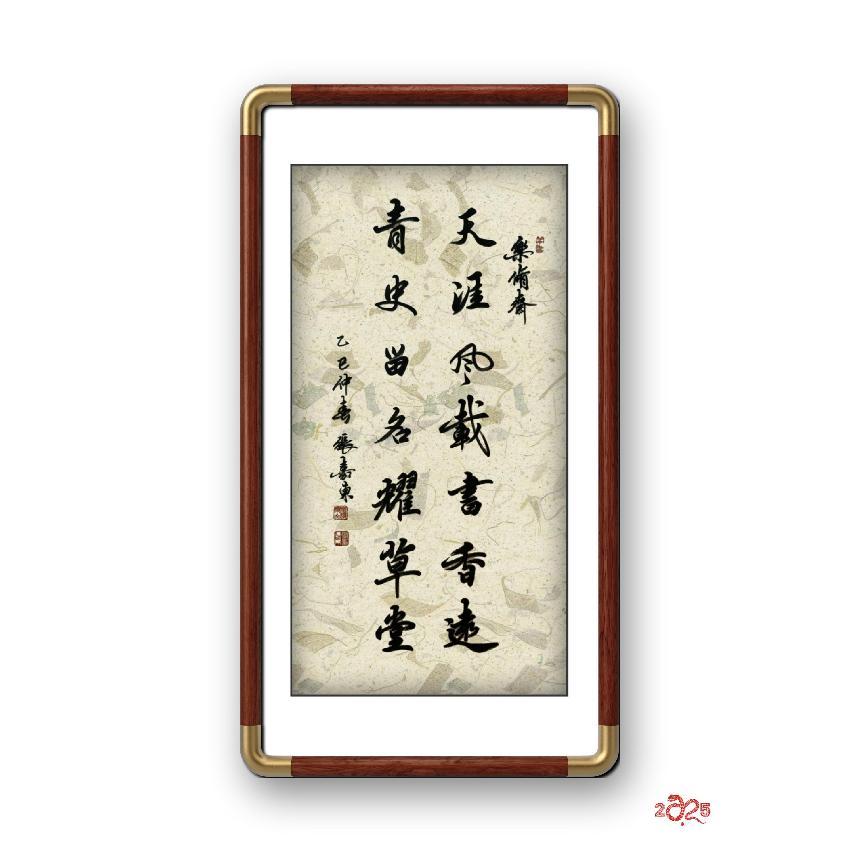 樂脩齋
天涯風載書香遠
青史留名耀草堂
乙巳仲春張嘉東
2025